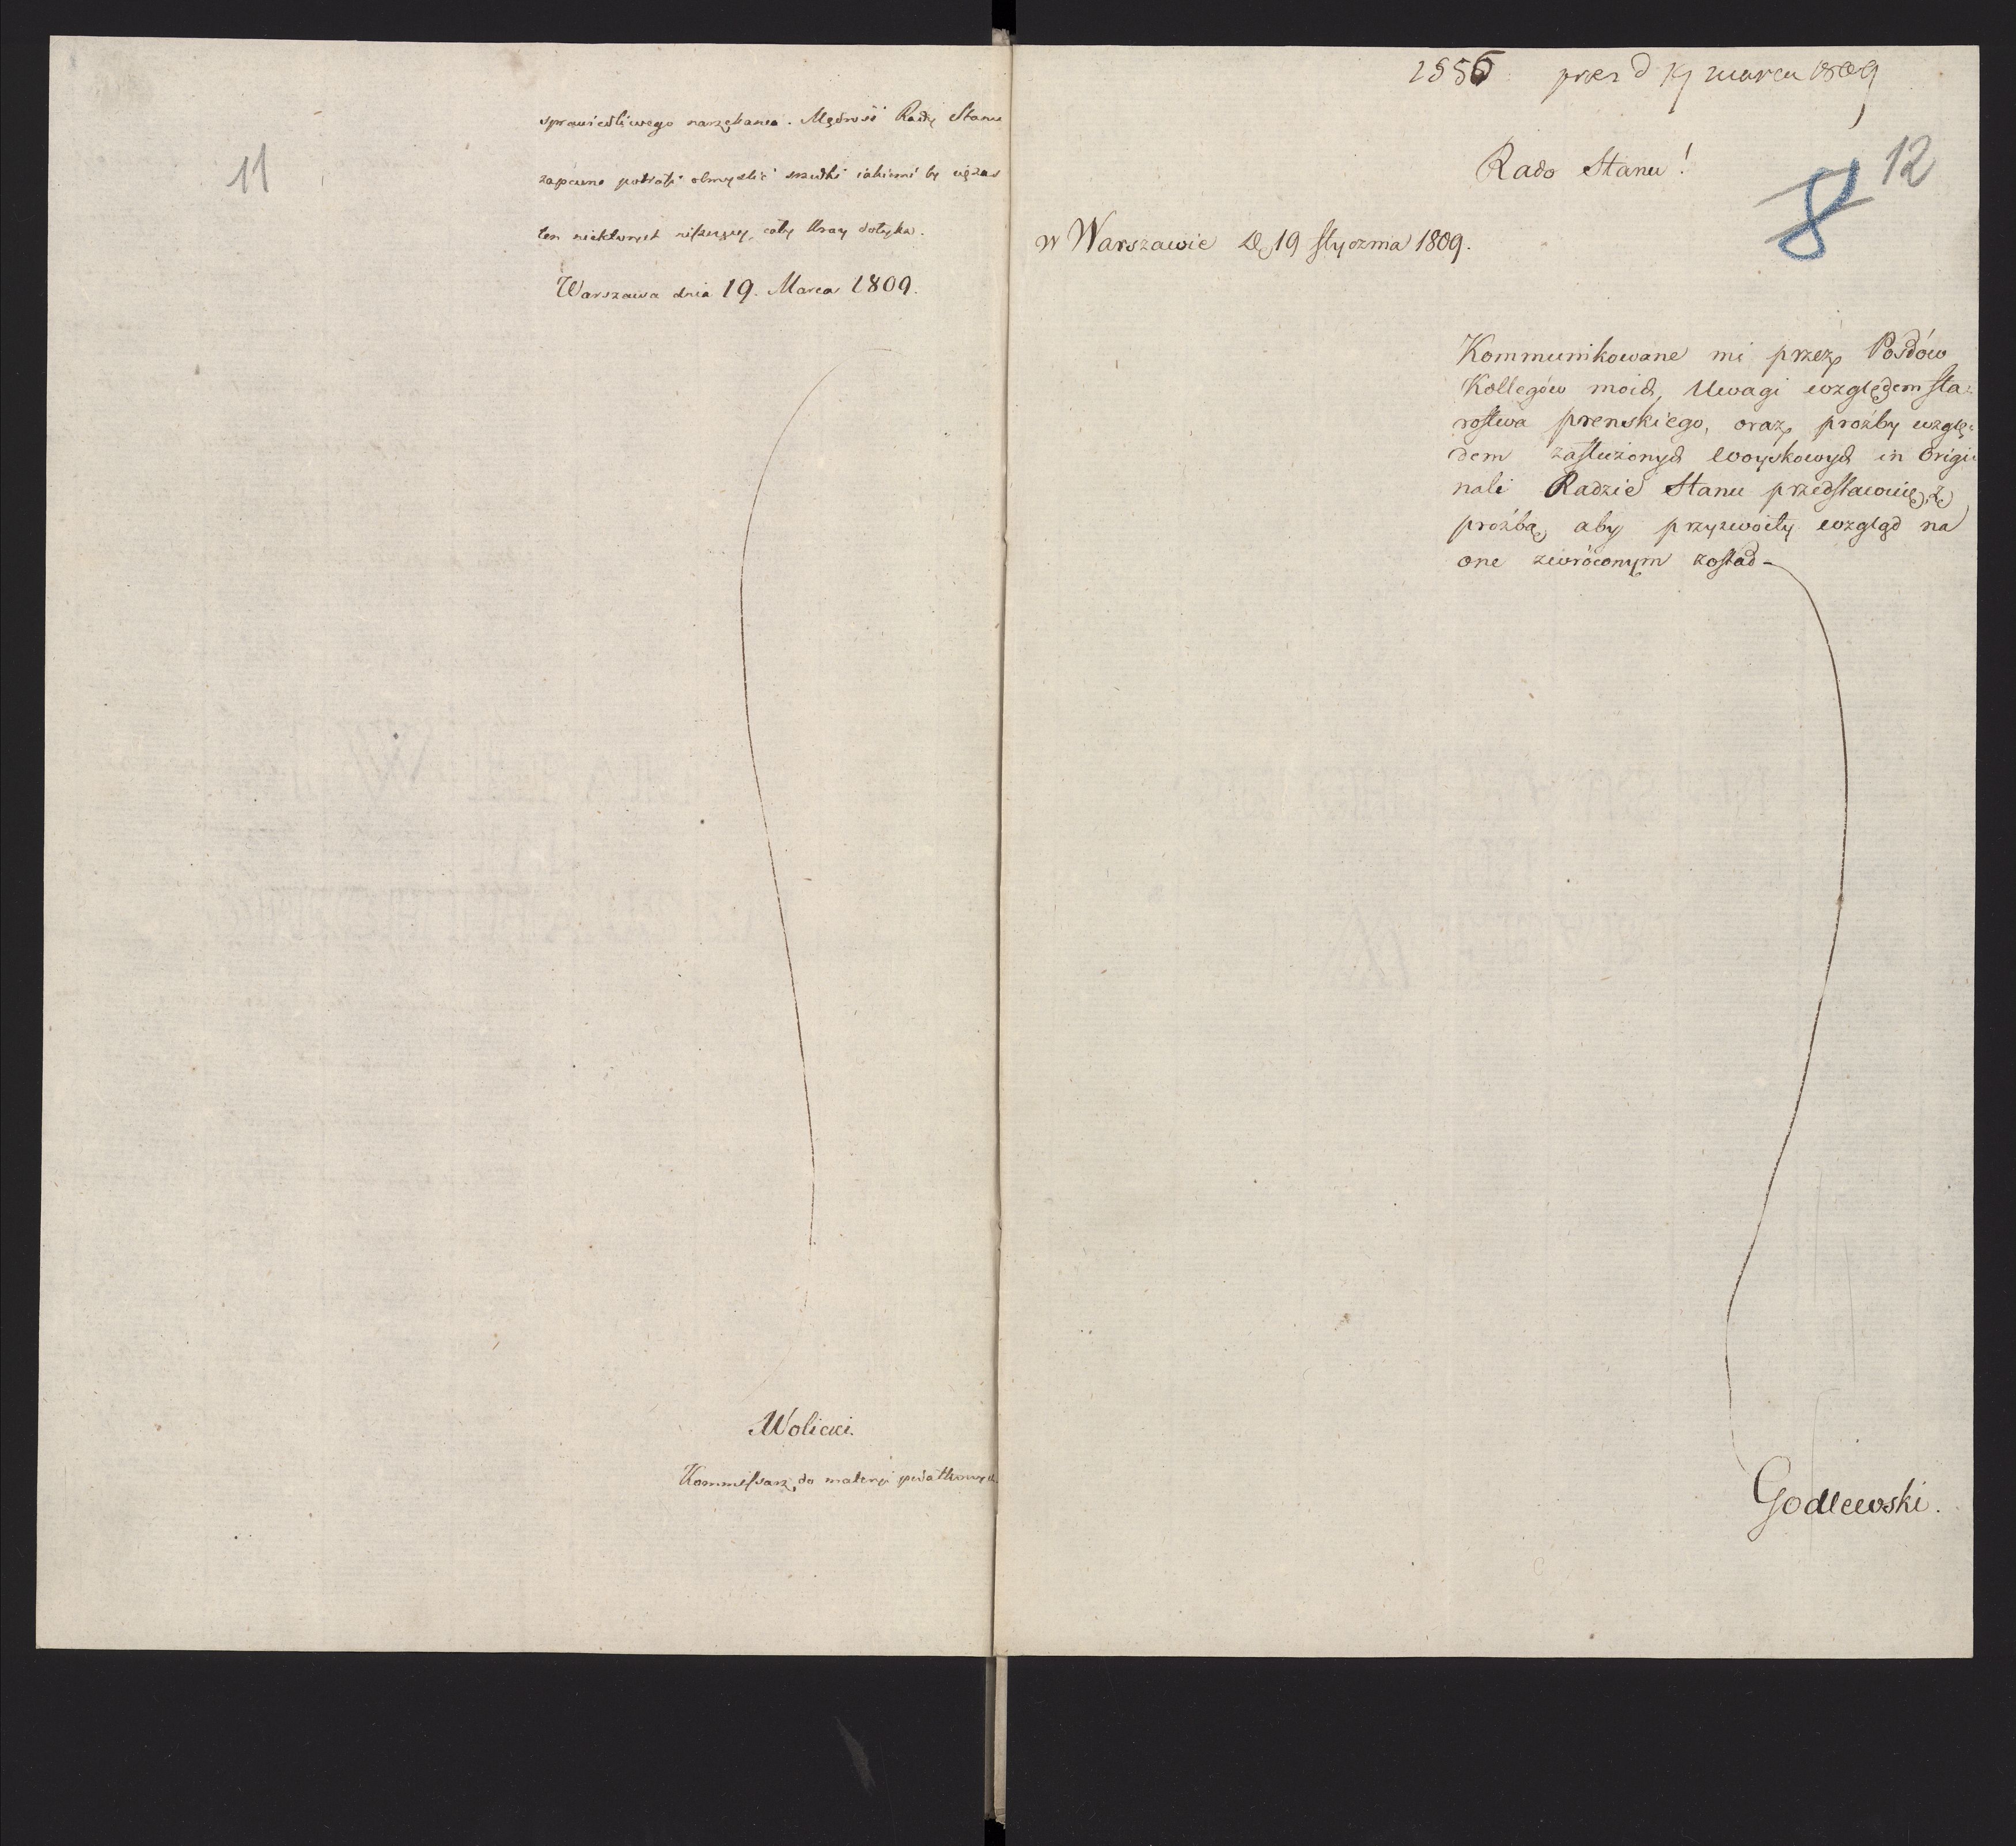 11
sprawiedliwego narzękania. Mądrość Rady Stanu
zapewne potrafi obmyslić szrodki iakiemi by ciężar
ten niektorych niszczący, cały Kray dotyka.
Warszawa dnia 19. Marca 1809.
Wolicki
Kommissarz do materyi podatkowych
1556 prez d 19 marca 1809
12
Rado Stanu!
8
w Warszawie D. 19 stycznia 1809.
Kommunikowane mi przez Posłów
Kollegów moich, Uwagi względem sta=
rostwa prenskiego, oraz prozby wzglę=
dem zasłużonych Woyskowych in Origi=
nali Radzie Stanu przedstawuię, z
prozbą, aby przyzwoity wzgląd na
one zwróconym został –
Godlewski.